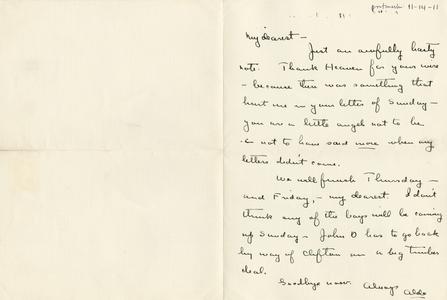 postmark 11-14-11
My dearest —
Just an awfully hasty
note. Thank Heaven for yours
— because there was something that
hurt me in your letter of Sunday —
you are a little angel not to be
— not to have said more when my
letters didn't come.
We will finish Thursday —
and Friday, — my dearest. I don't
think any of the boys will be coming
up Sunday — John D has to go back
by way of Clifton on a big timber
deal.
Goodbye now. Always
Aldo